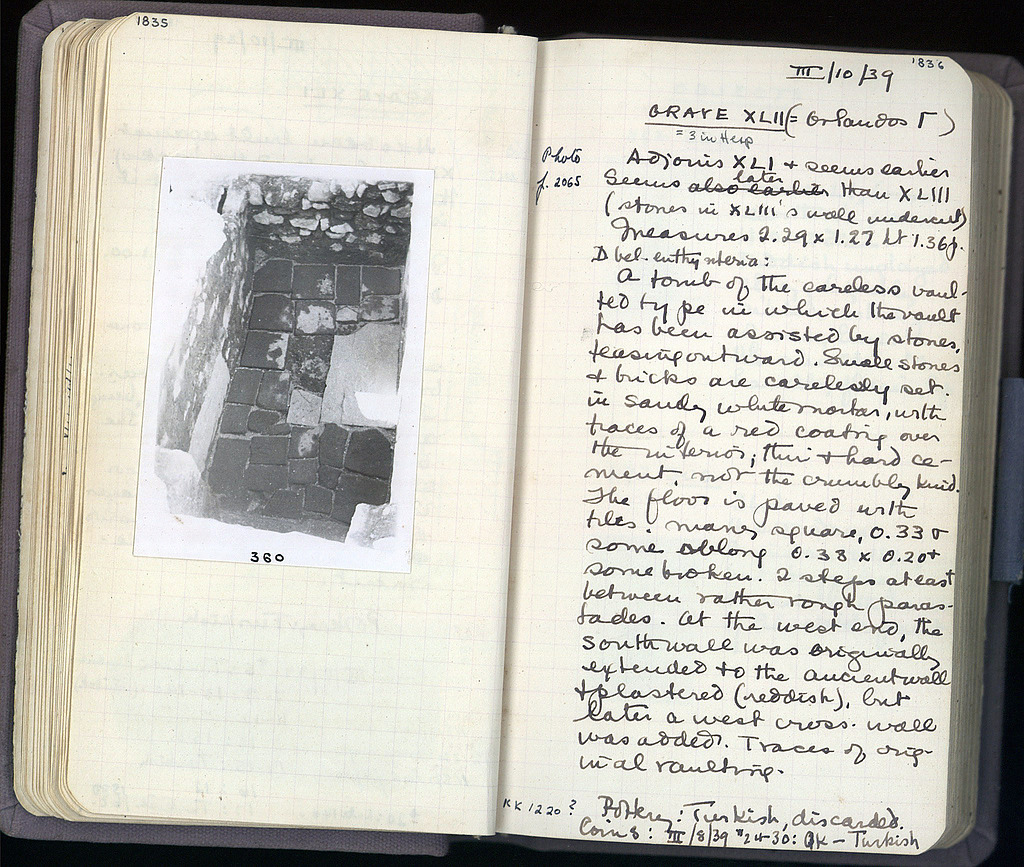 1835
360
1836
III/10/39
GRAVE XLII (= Orlandos Γ)
= 3 in Hesp
Photo
p. 2065
Adjoins XLI + seems earlier
Seems also earlier later than XLIII
(stones in XLIII's wall undercut)
Measures 2.29 x 1.27 ht 1.36 p.
D bel. enthynteria:
A tomb of the careless vaul-
ted type in which the vault
has been assisted by stones,
leasing outward. Small stones
+ bricks are carelessly set
in sandy white mortar, with
traces of a red coating over
the interios; thin + hard ce-
ment, not the crumbly kind.
The floor is paved with
tiles: many square, 0.33 +
some oblong 0.38 x 0.20 +
some broken. 2 steps at east
between rather rough paras-
tades. At the west end, the
south wall was originally
extended to the ancient wall
+ plastered (reddish), but
later a west cross-wall
was added. Traces of orig-
inal vaulting.
KK 1220?
Pottery: Turkish, discarded.
Coins: III/8/39 #24-30: OK - Turkish